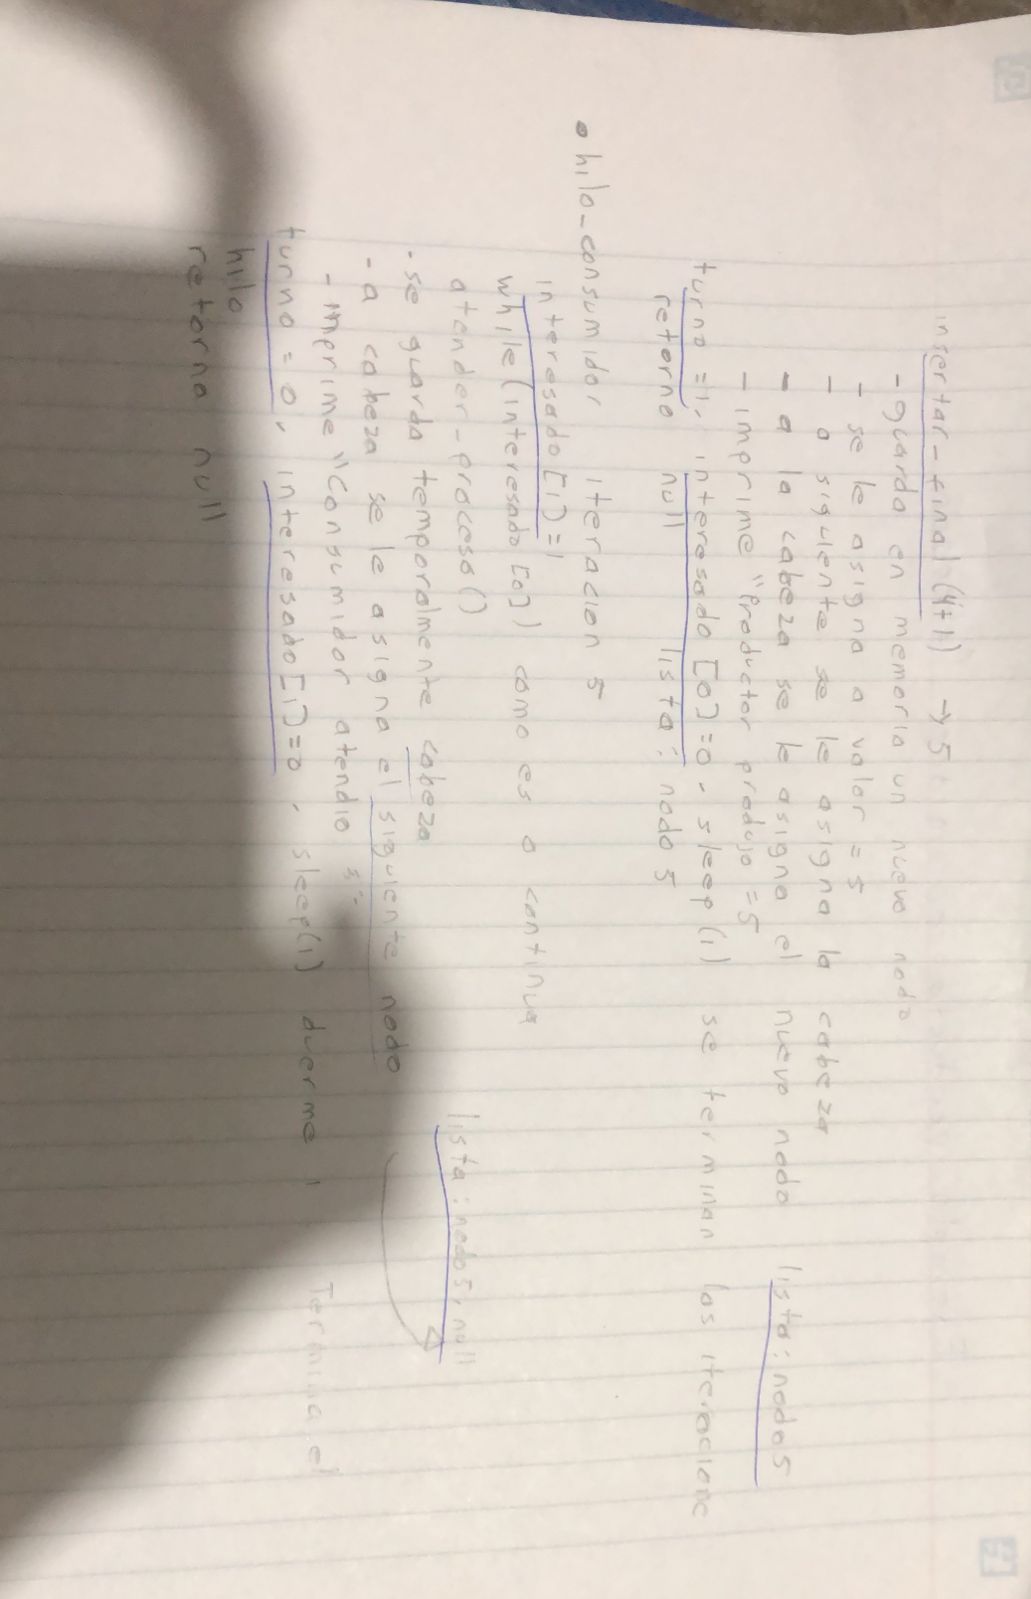 insertar-final (4+1) → 5
- guarda en memoria un nuevo nodo
- se le asigna a valor = 5
- a siguiente se le asigna la cabeza
- a la cabeza se le asigna el nuevo nodo lista: nodo 5
- imprime "Productor produjo = 5
turno = 1, interesado [0]=0, sleep (1) se terminan las iteracione
retorno null lista: nodo 5
• hilo-consumidor iteracion 5
interesado [1]=1
while (interesado [0]) como es 0 continua
atender-proceso()
- se guarda temporalmente cabeza lista: nodo 5, null
- a cabeza se le asigna el siguiente nodo
- imprime "Consumidor atendio
turno = 0, interesado[1]=0, sleep(1) duerme 1 Termina el
hilo
retorno null